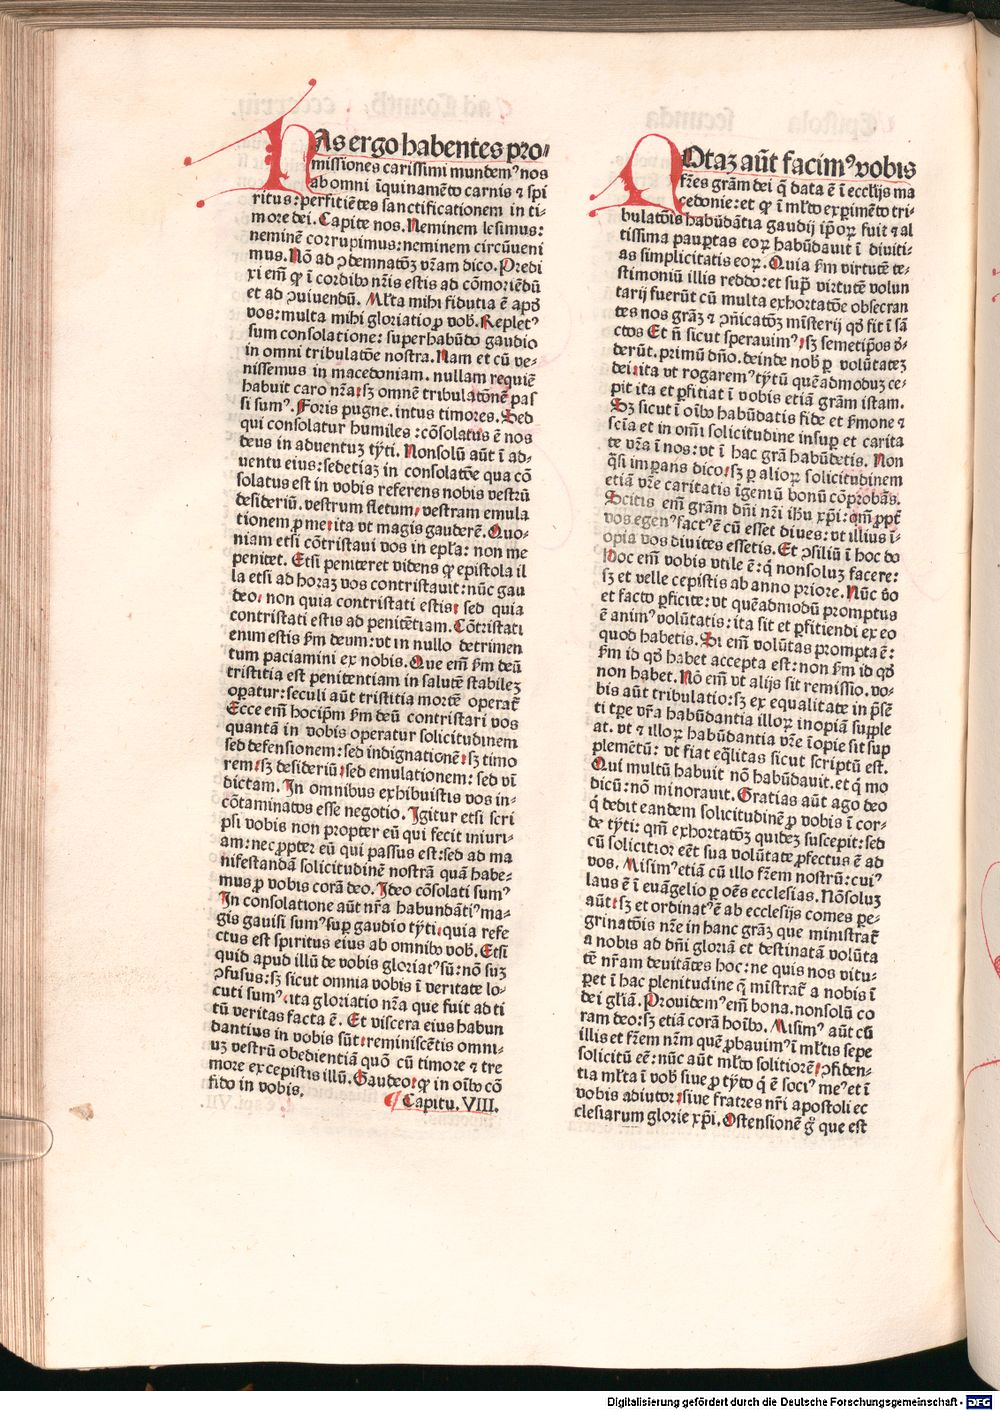 HAs ergo habentes pro⸗
missiones carissimi mundemꝰ nos
ab omni īquinamēto carnis ⁊ spi
ritus: perfitiētes sanctificationem in ti⸗
more dei. Capite nos. Neminem lesimus:
neminē corrupimus: neminem circūueni
mus. Nō ad ↄdemnatōꝫ vr̄am dico. Predi
xi em̄ ꝙ ī cordibꝰ nr̄is estis ad cōmoriēdū
et ad ↄuiuendū. Ml̄ta mihi fidutia ē apđ
vos: multa mihi gloriatio ꝓ vob̄. Repletꝰ
sum consolatione: superhabūdo gaudio
in omni tribulatōe nostra. Nam et cū ve⸗
nissemus in macedoniam. nullam requiē
habuit caro nr̄a: sꝫ omnē tribulatōnē pas
si sumꝰ. Foris pugne. intus timores. Sed
qui consolatur humiles: cōsolatus ē nos
deus in aduentuꝫ tyti. Nonsolū aūt ī ad⸗
uentu eius: sed etiaꝫ in consolatōe qua cō
solatus est in vobis referens nobis vestrū
desideriū. vestrum fletum: vestram emula
tionem ꝓ me: ita vt magis gauderē. Quo⸗
niam etsi cōtristaui vos in epl̄a: non me
penitet. Etsi peniteret videns ꝙ epistola il
la etsi ad horaꝫ vos contristauit: nūc gau
deo: non quia contristati estis: sed quia
contristati estis ad penitētiam. Cōtristati
enim estis ẜm deum: vt in nullo detrimen
tum paciamini ex nobis. Que em̄ ẜm deū
tristitia est penitentiam in salutē stabileꝫ
operatur: seculi aūt tristitia mortē operat̄
Ecce em̄ hocip̄m ẜm deū contristari vos
quantā in vobis operatur solicitudinem
sed defensionem: sed indignationē: sꝫ timo
rem: sꝫ desideriū: sed emulationem: sed vī
dictam. In omnibus exhibuistis vos in⸗
cōtaminatos esse negotio. Igitur etsi scri
psi vobis non propter eū qui fecit iniuri⸗
am: nec ꝓpter eū qui passus est: sed ad ma
nifestandā solicitudinē nostrā quā habe⸗
mus ꝓ vobis corā deo. Ideo cōsolati sumꝰ
In consolatione aūt nr̄a habundātiꝰ ma⸗
gis gauisi sumꝰ suꝑ gaudio tyti: quia refe
ctus est spiritus eius ab omnibꝰ vob̄. Etsi
quid apud illū de vobis gloriatꝰ sū: nō suꝫ
ↄfusus: sꝫ sicut omnia vobis ī veritate lo⸗
cuti sumꝰ: ita gloriatio nr̄a que fuit ad ti
tū veritas facta ē. Et viscera eius habun
dantius in vobis sūt: reminiscētis omni⸗
uꝫ vestrū obedientiā quō cū timore ⁊ tre
more excepistis illū. Gaudeo: ꝙ in oībꝰ cō
fido in vobis.
¶ Capitu. VIII.
NOtaꝫ aūt facimꝰ vobis
fr̄es grām dei q̄ data ē ī eccl̄ijs ma
cedonie: et ꝙ ī ml̄to exꝑimēto tri⸗
bulatōis habūdātia gaudij ip̄oꝝ fuit ⁊ al
tissima pauꝑtas eoꝝ habūdauit ī diuiti⸗
as simplicitatis eoꝝ. Quia ẜm virtutē te⸗
stimoniū illis reddo: et sup̄ virtutē volun
tarij fuerūt cū multa exhortatōe obsecran
tes nos grāꝫ ⁊ ↄn̄icatōꝫ mīsterij qđ fit ī sā
ctos Et n̄ sicut sperauimꝰ: sꝫ semetip̄os đ⸗
derūt. primū dn̄o. deinde nob̄ ꝑ volūtateꝫ
dei: ita vt rogaremꝰ tytū quēadmoduꝫ ce⸗
pit ita et ꝑfitiat ī vobis etiā grām istam.
Sꝫ sicut ī oībꝰ habūdatis fide et ẜmone ⁊
scīa et in om̄i solicitudine insuꝑ et carita
te vr̄a ī nos: vt ī hac grā habūdetis. Non
q̄si imꝑans dico: sꝫ ꝑ alioꝝ solicitudinem
etiā vr̄e caritatis īgeniū bonū cōprobās.
Scitis em̄ grām dn̄i nr̄i ih̄u xp̄i: qm̄ ꝓpt̄
vos egenꝰ factꝰ ē cū esset diues: vt illius ī⸗
opia vos diuites essetis. Et ↄsiliū ī hoc do
hoc em̄ vobis vtile ē: q̄ nonsoluꝫ facere:
sꝫ et velle cepistis ab anno priore. Nūc v̄o
et facto ꝑficite: vt quēadmodū promptus
ē animꝰ volūtatis: ita sit et ꝑfitiendi ex eo
quod habetis. Si em̄ volūtas prompta ē:
ẜm id qđ habet accepta est: non ẜm id qđ
non habet. Nō em̄ vt alijs sit remissio. vo⸗
bis aūt tribulatio: sꝫ ex equalitate in p̄sē
ti tꝑe vr̄a habūdantia illoꝝ inopiā supple
at. vt ⁊ illoꝝ habūdantia vr̄e īopie sit sup
plemētū: vt fiat eq̄litas sicut scriptū est.
Qui multū habuit nō habūdauit. et q̄ mo
dicū: nō minorauit. Gratias aūt ago deo
q̄ dedit eandem solicitudinē ꝓ vobis ī cor⸗
de tyti: qm̄ exhortatōꝫ quideꝫ suscepit: sed
cū solicitior eēt sua volūtate ꝓfectus ē ad
vos. Misimꝰ etiā cū illo fr̄em nostrū: cuiꝰ
laus ē ī euāgelio ꝑ oēs ecclesias. Nōsoluꝫ
aūt: sꝫ et ordinatꝰ ē ab ecclesijs comes pe⸗
grinatōis nr̄e in hanc grāꝫ que ministrat̄
a nobis ad dn̄i gloriā et destinatā volūta
tē nr̄am deuitātes hoc: ne quis nos vitu⸗
ꝑet ī hac plenitudine q̄ mīstrat̄ a nobis ī
dei gl̄iā. Prouidemꝰ em̄ bona. nonsolū co
ram deo: sꝫ etiā corā hoībꝰ. Misimꝰ aūt cū
illis et fr̄em nr̄m quē ꝓbauimꝰ ī ml̄tis sepe
solicitū eē: nūc aūt ml̄to solitiorē: ↄfiden⸗
tia ml̄ta ī vob̄ siue ꝓ tyto q̄ ē sociꝰ meꝰ et ī
vobis adiutor: siue fratres nr̄i apostoli ec
clesiarum glorie xp̄i. Ostensionē g̊ que est
Digitalisierung gefördert durch die Deutsche Forschungsgemeinschaft - DFG